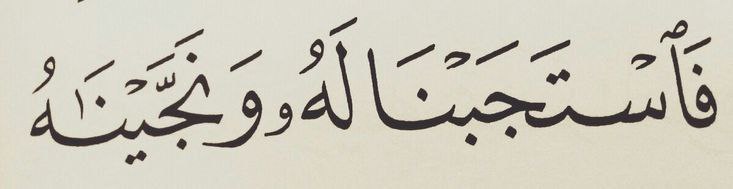 فَٱسْتَجَبْنَا لَهُۥ وَنَجَّيْنَٰهُ